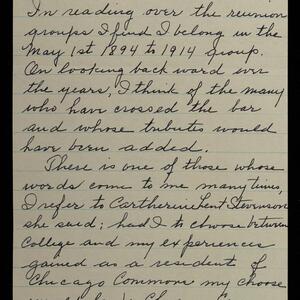 In reading over the reunion
groups I find I belong in the
May 1st 1894 to 1914 group.
On looking back ward over
the years, I think of the many
who have crossed the bar
and whose tributes would
have been added.
There is one of those whose
words come to me many times,
I refer to Cartherine Lent Stevenson
she said; had I to choose between
College and my experiences
gained as a resident of
Chicago Commons my choose